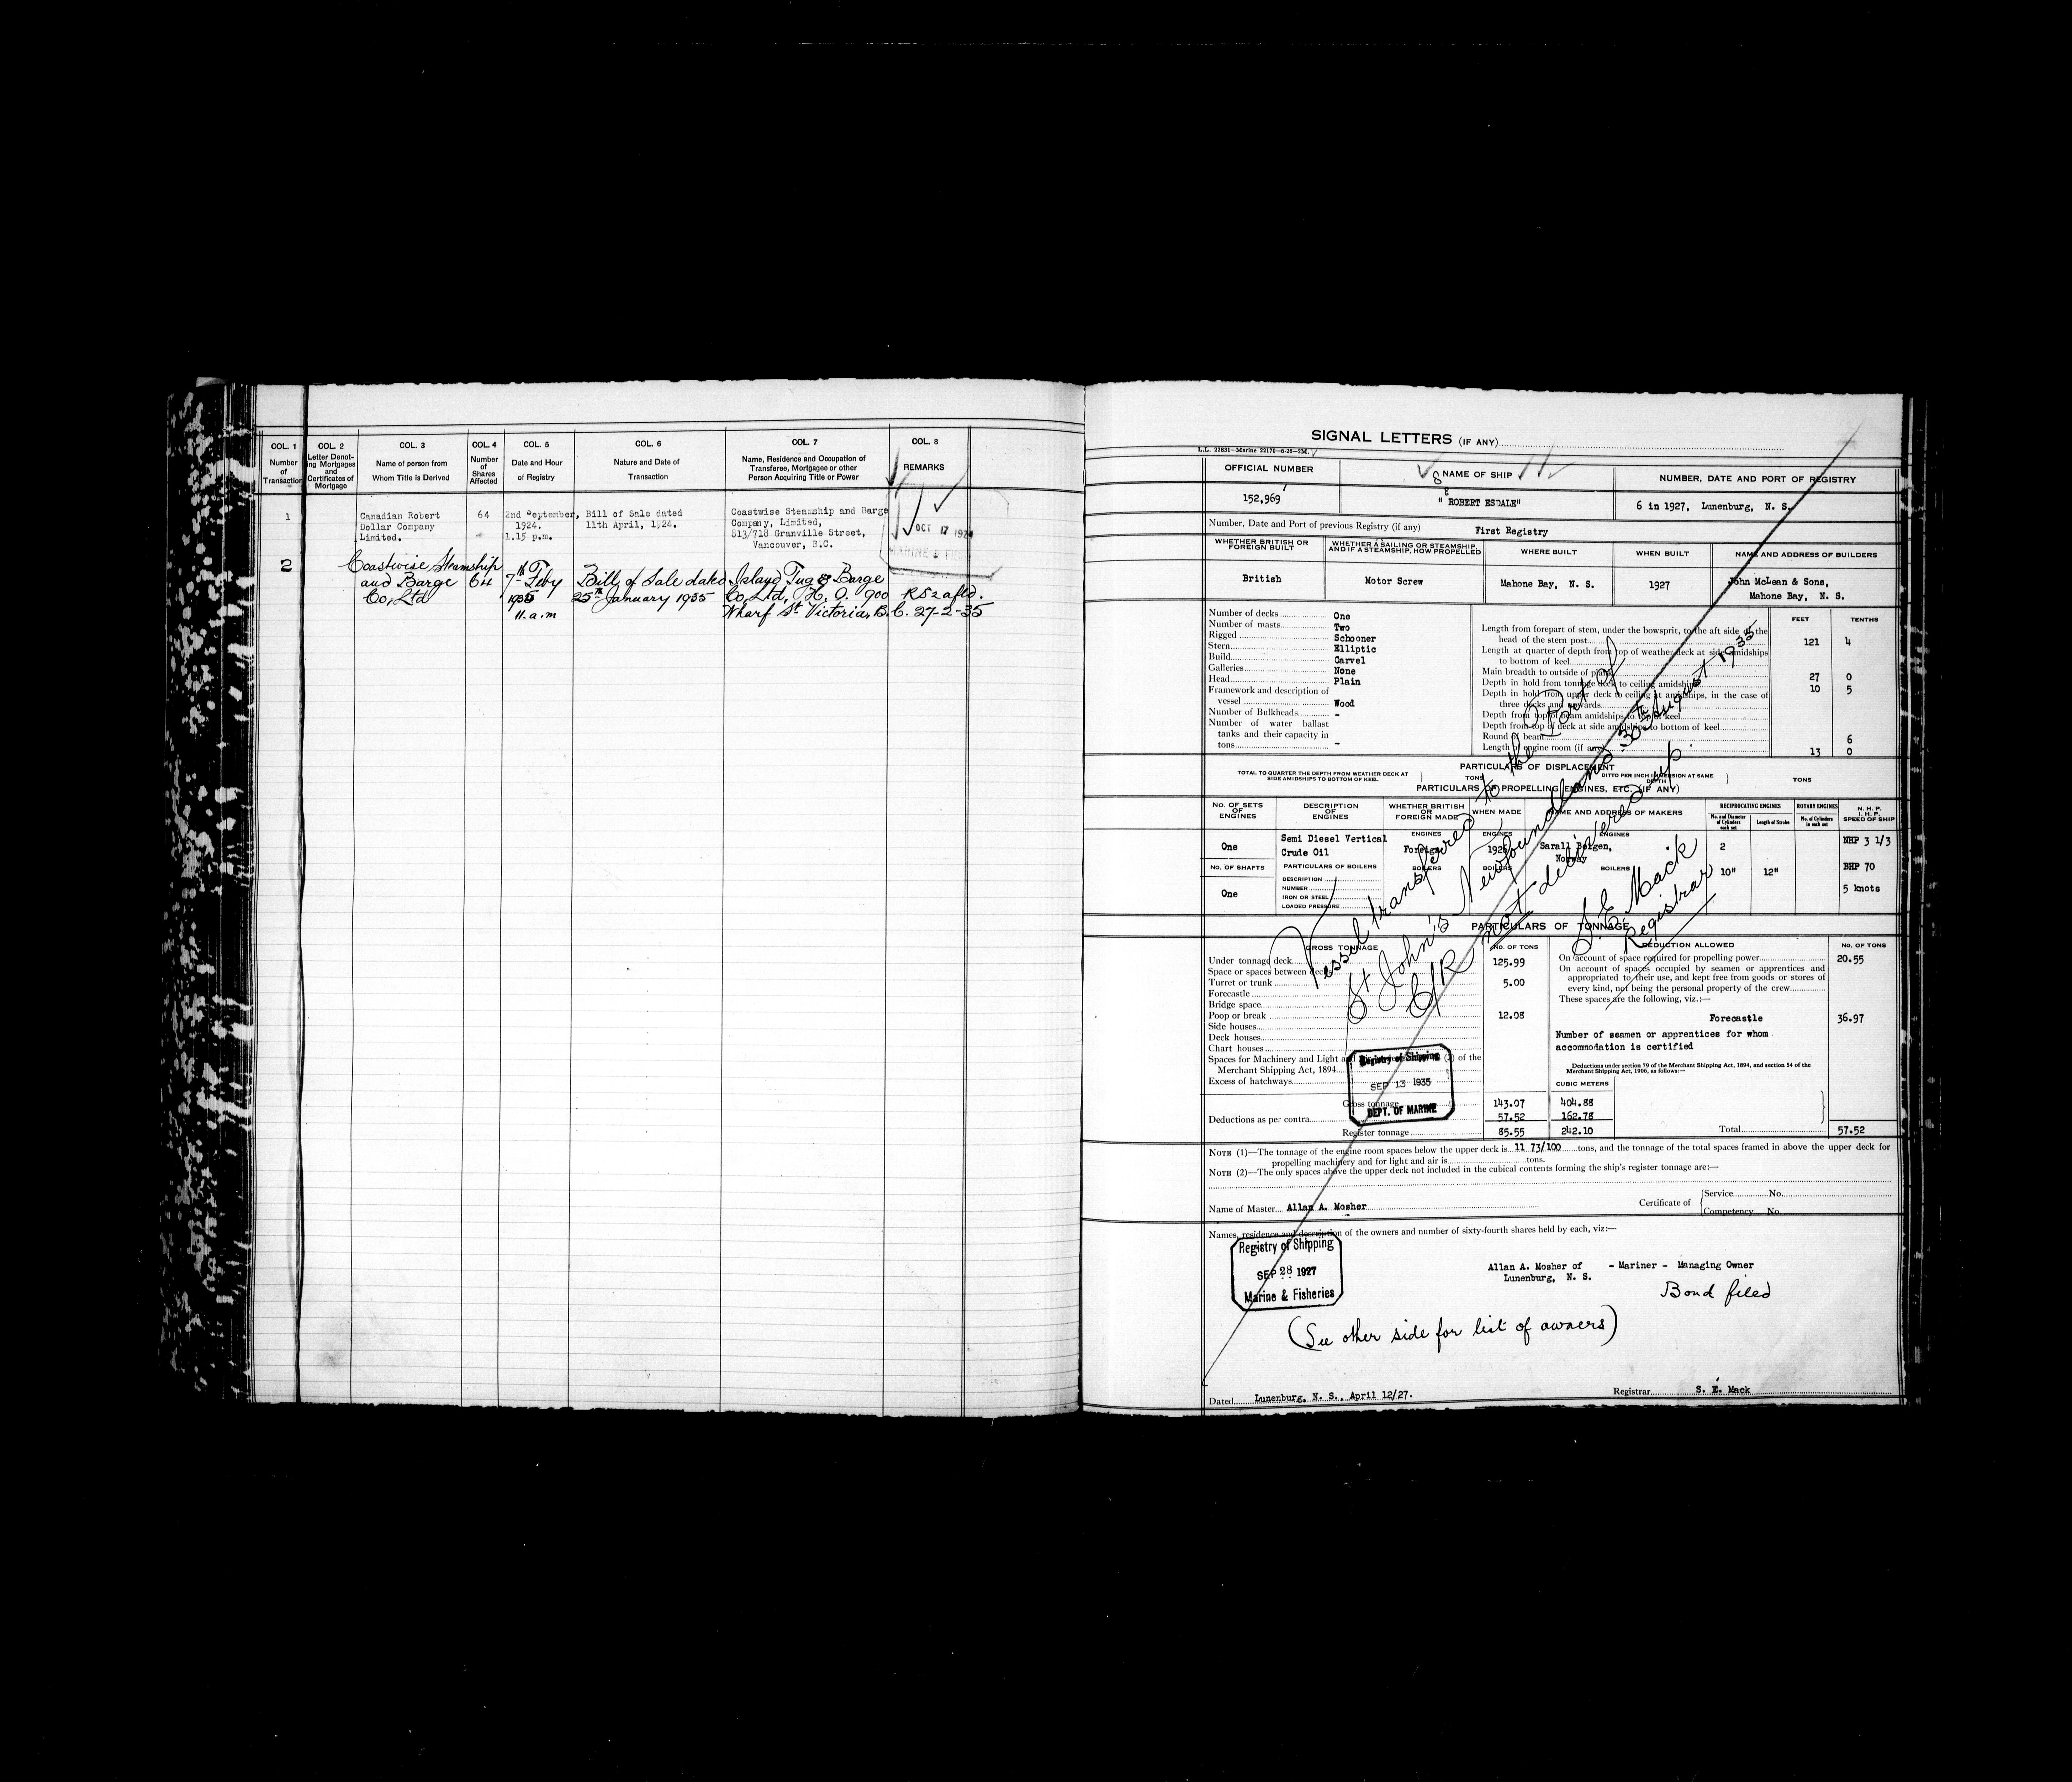 COL. 1 COL. 2 COL. 3 COL. 4 COL. 5 COL. 6 COL. 7 COL. 8
Number of Transaction
Letter Denoting Mortgages and Certificates of Mortgage
Name of person from Whom Title is Derived
Number of Shares Affected
Date and Hour of Registry
Nature and Date of Transaction
Name, Residence and Occupation of Transferee, Mortgagee or other Person Acquiring Title or Power
REMARKS
1 Canadian Robert 64 2nd September, Bill of Sale dated Coastwise Steamship and Barge
Dollar Company 1924. 11th April, 1924. Company, Limited,
Limited. 1.15 p.m. 813/718 Granville Street,
Vancouver, B.C.
OCT 17 1924
MARINE &
2 Coastwise Steamship
and Barge 64 7th Feby Bill of Sale dated Island Tug & Barge
Co, Ltd 1935 25th January 1935 Co, Ltd, H. O. 900
11.a.m Wharf St Victoria, B.C. 27-2-35
SIGNAL LETTERS (IF ANY)
L.L. 22831—Marine 22170—6-26—2M.
OFFICIAL NUMBER NAME OF SHIP NUMBER, DATE AND PORT OF REGISTRY
152,969 " ROBERT ESDALE" 6 in 1927, Lunenburg, N. S.
Number, Date and Port of previous Registry (if any) First Registry
WHETHER BRITISH OR FOREIGN BUILT
WHETHER A SAILING OR STEAMSHIP, AND IF A STEAMSHIP, HOW PROPELLED
WHERE BUILT WHEN BUILT NAME AND ADDRESS OF BUILDERS
British Motor Screw Mahone Bay, N. S. 1927 John McLean & Sons,
Mahone Bay, N. S.
Number of decks One
Number of masts Two
Rigged Schooner
Stern Elliptic
Build Carvel
Galleries None
Head Plain
Framework and description of
vessel Wood
Number of Bulkheads -
Number of water ballast
tanks and their capacity in
tons -
FEET TENTHS
Length from forepart of stem, under the bowsprit, to the aft side of the
head of the stern post 121 4
Length at quarter of depth from top of weather deck at side amidships
to bottom of keel
Main breadth to outside of plank 27 0
Depth in hold from tonnage deck to ceiling amidships 10 5
Depth in hold from upper deck to ceiling at amidships, in the case of
three decks and upwards
Depth from top of beam amidships to top of keel
Depth from top of deck at side amidships to bottom of keel
Round of beam 6
Length of engine room (if any) 13 0
PARTICULARS OF DISPLACEMENT
TOTAL TO QUARTER THE DEPTH FROM WEATHER DECK AT SIDE AMIDSHIPS TO BOTTOM OF KEEL TONS
DITTO PER INCH IMMERSION AT SAME DEPTH TONS
PARTICULARS OF PROPELLING ENGINES, ETC. (IF ANY)
No. OF SETS OF ENGINES
DESCRIPTION OF ENGINES
WHETHER BRITISH OR FOREIGN MADE
WHEN MADE
NAME AND ADDRESS OF MAKERS
RECIPROCATING ENGINES ROTARY ENGINES
No. and Diameter of Cylinders each set
Length of Stroke
No. of Cylinders in each set
N. H. P. I. H. P. SPEED OF SHIP
ENGINES ENGINES ENGINES
One Semi Diesel Vertical Foreign 1926 Sarall Bergen, 2 NHP 3 1/3
Crude Oil Norway
No. OF SHAFTS PARTICULARS OF BOILERS BOILERS BOILERS BOILERS 10" 12" BHP 70
DESCRIPTION
NUMBER
One IRON OR STEEL 5 knots
LOADED PRESSURE
PARTICULARS OF TONNAGE
GROSS TONNAGE No. OF TONS DEDUCTION ALLOWED No. OF TONS
Under tonnage deck 125.99
Space or spaces between decks
Turret or trunk 5.00
Forecastle
Bridge space
Poop or break 12.08
Side houses
Deck houses
Chart houses
Spaces for Machinery and Light and of the
Merchant Shipping Act, 1894
Excess of hatchways
Gross tonnage 143.07
Deductions as per contra 57.52
Register tonnage 85.55
CUBIC METERS
404.88
162.78
242.10
On account of space required for propelling power 20.55
On account of spaces occupied by seamen or apprentices and
appropriated to their use, and kept free from goods or stores of
every kind, not being the personal property of the crew
These spaces are the following, viz.:—
Forecastle 36.97
Number of seamen or apprentices for whom
accommodation is certified
Deductions under section 79 of the Merchant Shipping Act, 1894, and section 54 of the
Merchant Shipping Act, 1906, as follows:—
Total 57.52
Vessel transferred to the Port of
St John's Newfoundland 30th August 1935
C/R not delivered up.
S. E. Mack
Registrar
Registry of Shipping
SEP 13 1935
DEPT. OF MARINE
NOTE (1)—The tonnage of the engine room spaces below the upper deck is 11 73/100 tons, and the tonnage of the total spaces framed in above the upper deck for
propelling machinery and for light and air is tons.
NOTE (2)—The only spaces above the upper deck not included in the cubical contents forming the ship's register tonnage are:—
Name of Master Allan A. Mosher Certificate of Service No.
Competency No.
Names, residence and description of the owners and number of sixty-fourth shares held by each, viz:—
Registry of Shipping
SEP 28 1927
Marine & Fisheries
Allan A. Mosher of - Mariner - Managing Owner
Lunenburg, N. S.
Bond filed
(See other side for list of owners)
Dated Lunenburg, N. S., April 12/27. Registrar S. E. Mack